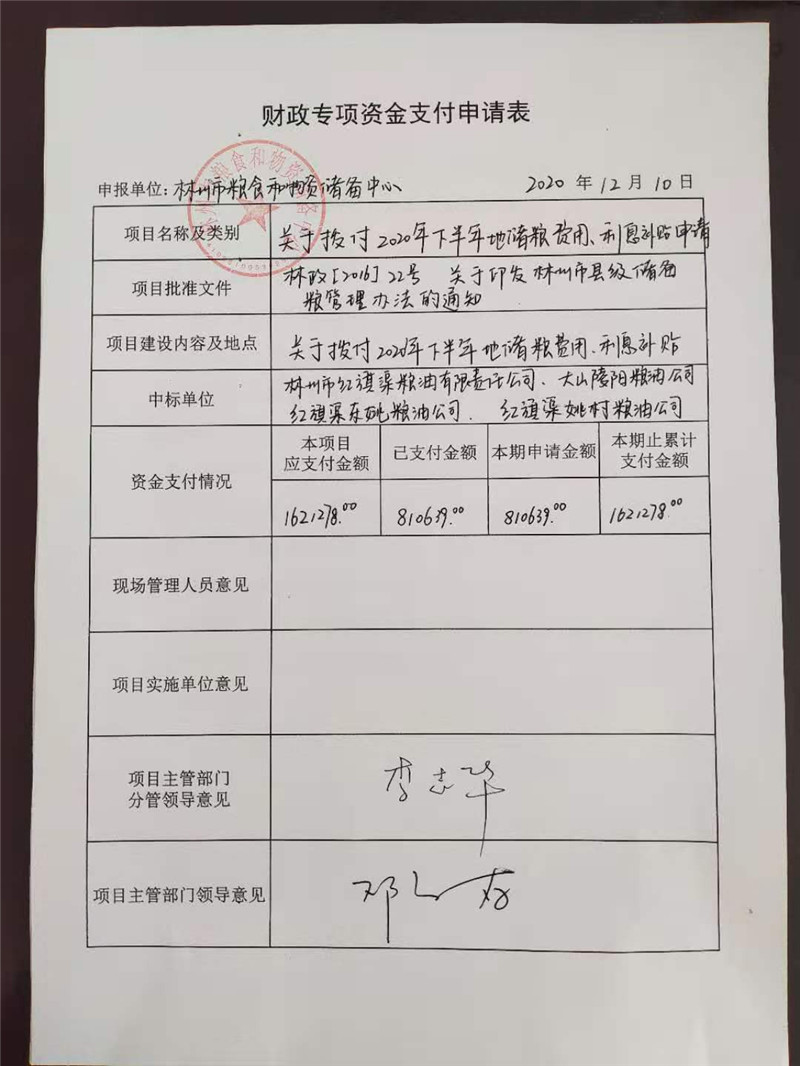 财政专项资金支付申请表
申报单位：林州市粮食和物资储备中心 2020 年 12 月 10 日
项目名称及类别 关于拨付2020年下半年地储粮费用、利息补贴申请
项目批准文件 林政[2016]22号 关于印发林州市县级储备
粮管理办法的通知
项目建设内容及地点 关于拨付2020年下半年地储粮费用、利息补贴
中标单位 林州市红旗渠粮油有限责任公司、大山陵阳粮油公司
红旗渠东姚粮油公司、 红旗渠姚村粮油公司
资金支付情况
本项目 应支付金额 已支付金额 本期申请金额 本期止累计 支付金额
1621278.00 810639.00 810639.00 1621278.00
现场管理人员意见
项目实施单位意见
项目主管部门
分管领导意见
李志华
项目主管部门领导意见 邓